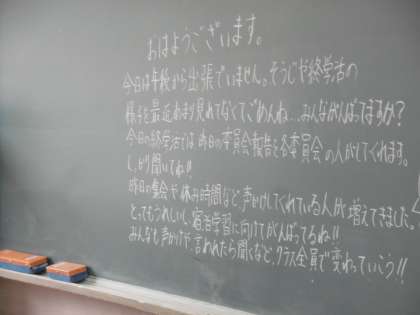 おはようございます。
今日は午後から出張でいません。そうじや終学活の
様子を最近あまり見れてなくてごめんね…みんながんばってますか?
今日の終学活では、昨日の委員会報告を各委員会の人がしてくれます。
しっかり聞いてね!!
昨日の集会や休み時間など、声かけしてくれている人が増えてきました。
とってもうれしい。宿泊学習に向けてがんばってるね!!
みんなも声かけや、言われたら聞くなど、クラス全員で変わっていこう!!